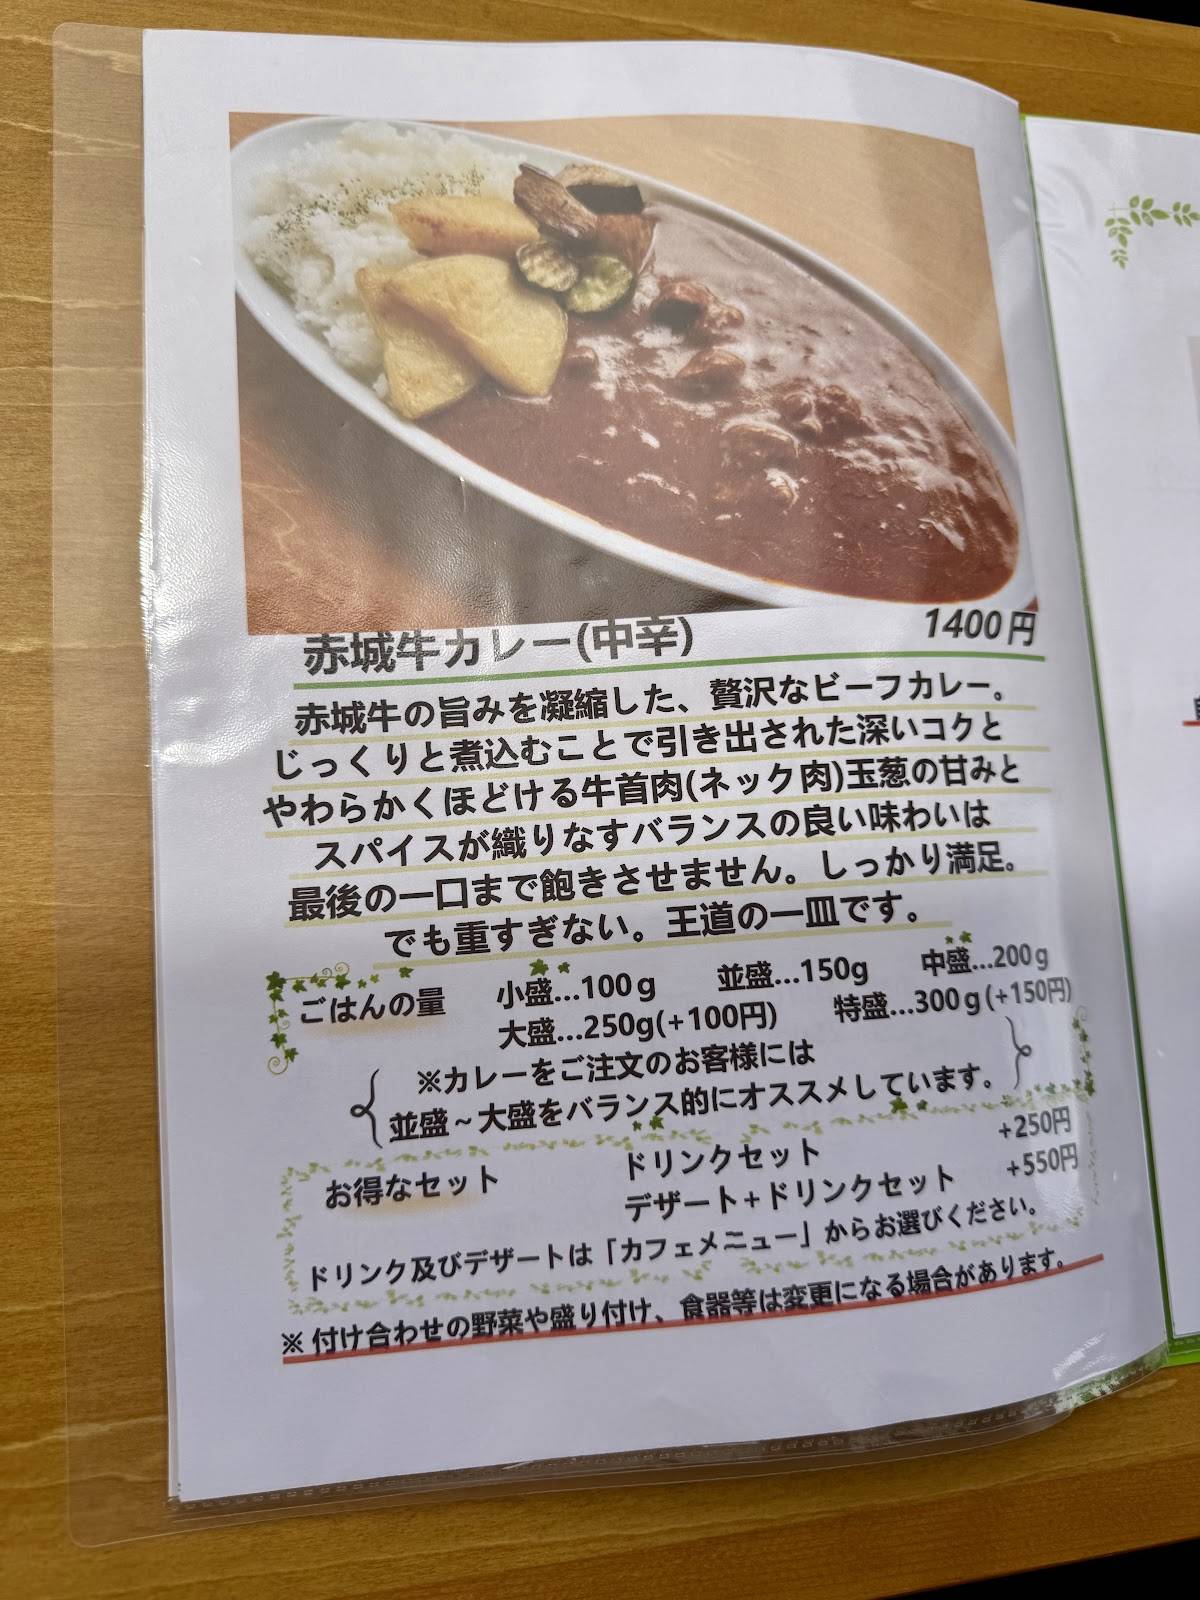 赤城牛カレー(中辛)
1400円
赤城牛の旨みを凝縮した、贅沢なビーフカレー。
じっくりと煮込むことで引き出された深いコクと
やわらかくほどける牛首肉(ネック肉)玉葱の甘みと
スパイスが織りなすバランスの良い味わいは
最後の一口まで飽きさせません。しっかり満足。
でも重すぎない。王道の一皿です。
ごはんの量
小盛…100g 並盛…150g 中盛…200g
大盛…250g(+100円) 特盛…300g(+150円)
※カレーをご注文のお客様には
並盛~大盛をバランス的にオススメしています。
お得なセット
ドリンクセット +250円
デザート+ドリンクセット +550円
ドリンク及びデザートは「カフェメニュー」からお選びください。
※付け合わせの野菜や盛り付け、食器等は変更になる場合があります。